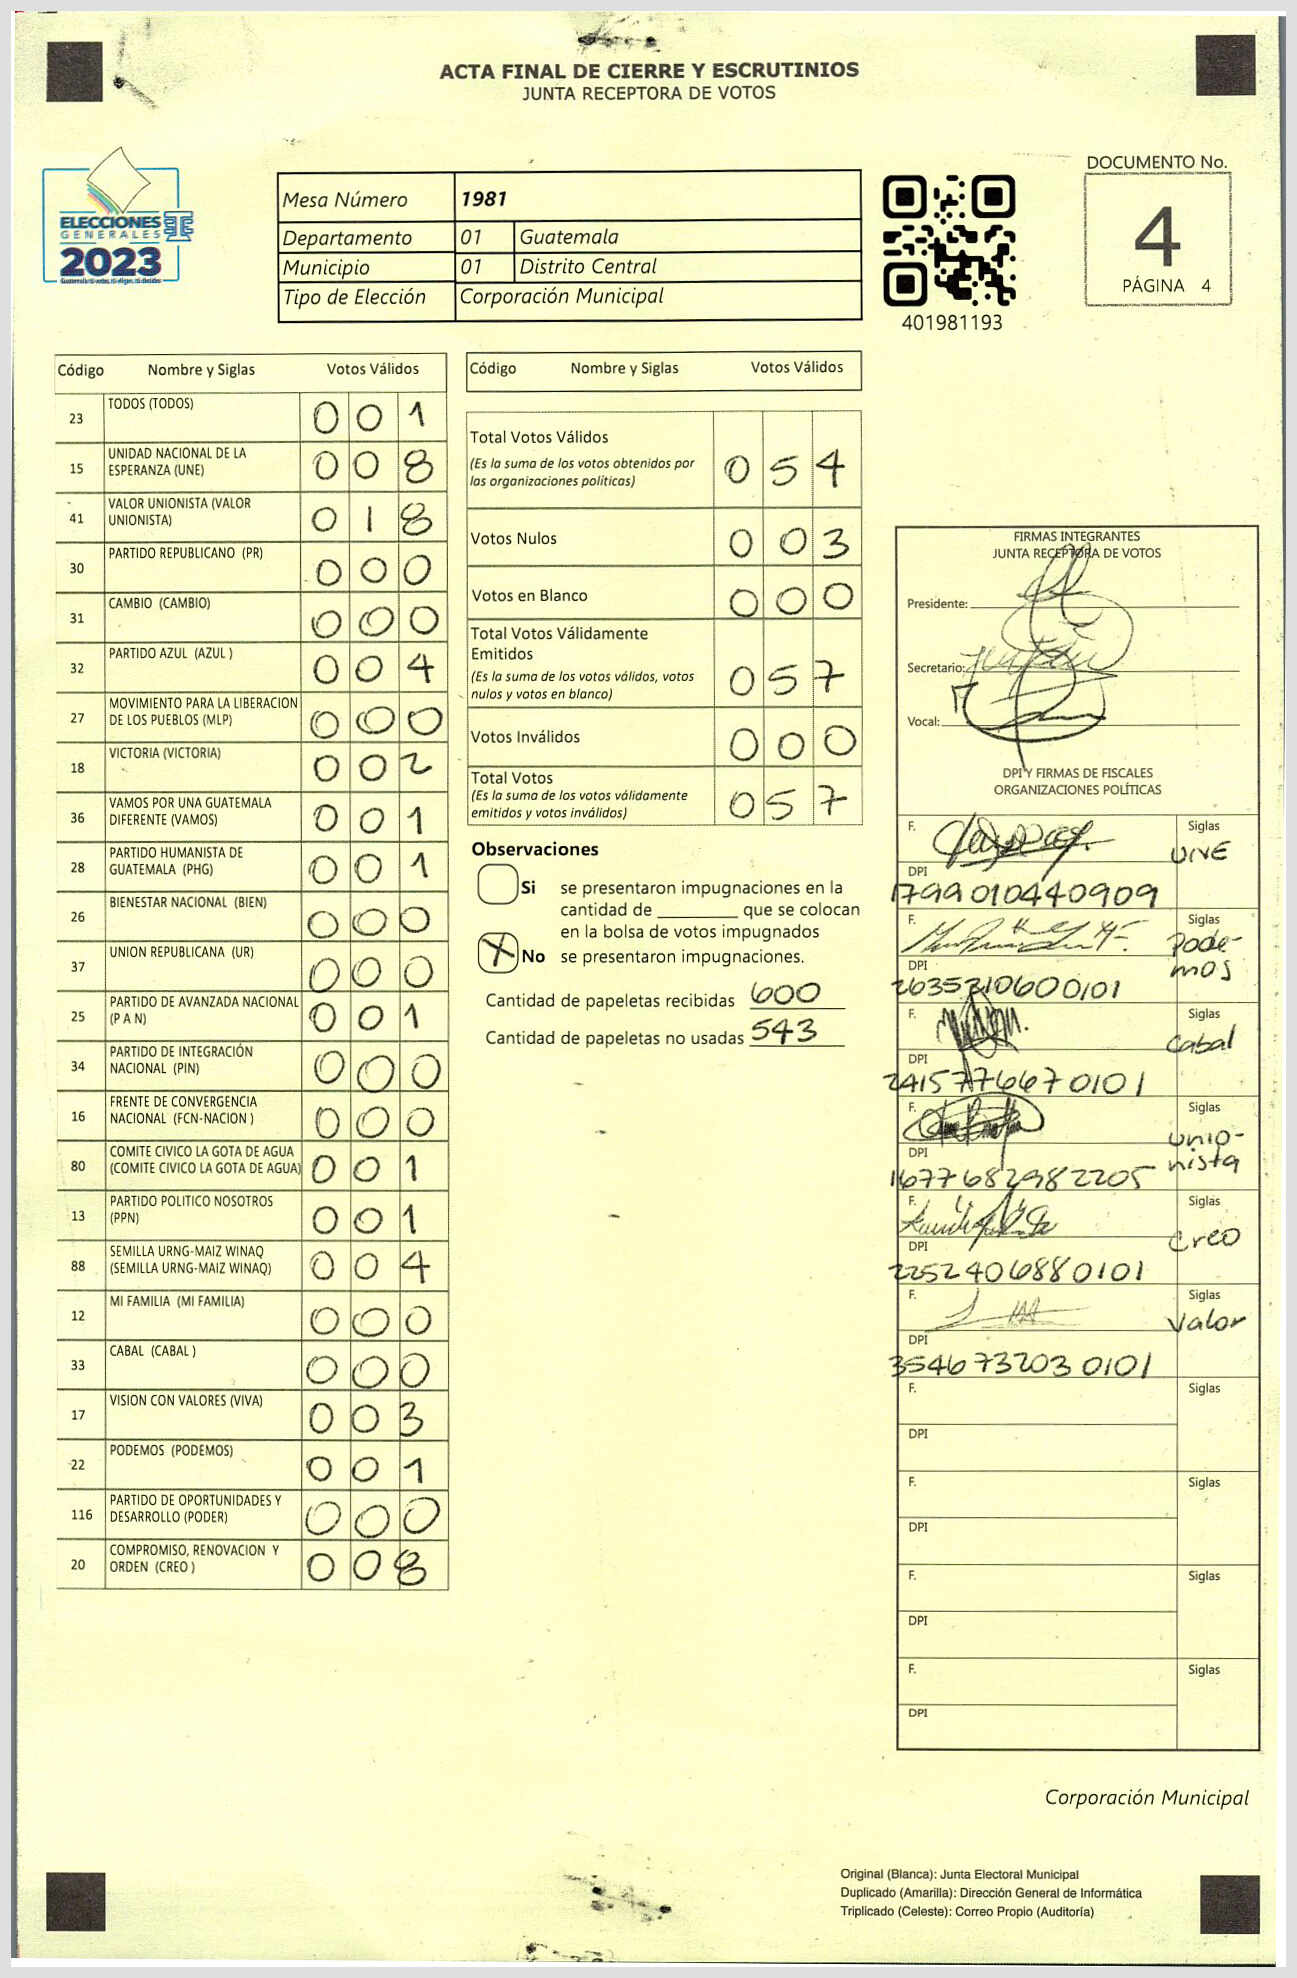 ACTA FINAL DE CIERRE Y ESCRUTINIOS
JUNTA RECEPTORA DE VOTOS
ELECCIONES
GENERALES
2023
TSE
Mesa Número 1981
Departamento 01 Guatemala
Municipio 01 Distrito Central
Tipo de Elección Corporación Municipal
401981193
DOCUMENTO No.
4
PÁGINA 4
Código Nombre y Siglas Votos Válidos
23 TODOS (TODOS) 0 0 1
15 UNIDAD NACIONAL DE LA
ESPERANZA (UNE) 0 0 8
41 VALOR UNIONISTA (VALOR
UNIONISTA) 0 1 8
30 PARTIDO REPUBLICANO (PR) 0 0 0
31 CAMBIO (CAMBIO) 0 0 0
32 PARTIDO AZUL (AZUL ) 0 0 4
27 MOVIMIENTO PARA LA LIBERACION
DE LOS PUEBLOS (MLP) 0 0 0
18 VICTORIA (VICTORIA) 0 0 2
36 VAMOS POR UNA GUATEMALA
DIFERENTE (VAMOS) 0 0 1
28 PARTIDO HUMANISTA DE
GUATEMALA (PHG) 0 0 1
26 BIENESTAR NACIONAL (BIEN) 0 0 0
37 UNION REPUBLICANA (UR) 0 0 0
25 PARTIDO DE AVANZADA NACIONAL
(P A N) 0 0 1
34 PARTIDO DE INTEGRACIÓN
NACIONAL (PIN) 0 0 0
16 FRENTE DE CONVERGENCIA
NACIONAL (FCN-NACION ) 0 0 0
80 COMITE CIVICO LA GOTA DE AGUA
(COMITE CIVICO LA GOTA DE AGUA) 0 0 1
13 PARTIDO POLITICO NOSOTROS
(PPN) 0 0 1
88 SEMILLA URNG-MAIZ WINAQ
(SEMILLA URNG-MAIZ WINAQ) 0 0 4
12 MI FAMILIA (MI FAMILIA) 0 0 0
33 CABAL (CABAL ) 0 0 0
17 VISION CON VALORES (VIVA) 0 0 3
22 PODEMOS (PODEMOS) 0 0 1
116 PARTIDO DE OPORTUNIDADES Y
DESARROLLO (PODER) 0 0 0
20 COMPROMISO, RENOVACION Y
ORDEN (CREO ) 0 0 8
Código Nombre y Siglas Votos Válidos
Total Votos Válidos
(Es la suma de los votos obtenidos por
las organizaciones políticas) 0 5 4
Votos Nulos 0 0 3
Votos en Blanco 0 0 0
Total Votos Válidamente
Emitidos
(Es la suma de los votos válidos, votos
nulos y votos en blanco) 0 5 7
Votos Inválidos 0 0 0
Total Votos
(Es la suma de los votos válidamente
emitidos y votos inválidos) 0 5 7
Observaciones
Si se presentaron impugnaciones en la
cantidad de ________ que se colocan
en la bolsa de votos impugnados
X No se presentaron impugnaciones.
Cantidad de papeletas recibidas 600
Cantidad de papeletas no usadas 543
FIRMAS INTEGRANTES
JUNTA RECEPTORA DE VOTOS
Presidente:
Secretario:
Vocal:
DPI Y FIRMAS DE FISCALES
ORGANIZACIONES POLÍTICAS
F. Siglas
UNE
DPI
1799010440909
F. Siglas
Pode-
mos
DPI
2635210600101
F. Siglas
Cabal
DPI
2415776670101
F. Siglas
unio-
nista
DPI
1677682982205
F. Siglas
Creo
DPI
2252406880101
F. Siglas
Valor
DPI
3546732030101
F. Siglas
DPI
F. Siglas
DPI
F. Siglas
DPI
F. Siglas
DPI
Corporación Municipal
Original (Blanca): Junta Electoral Municipal
Duplicado (Amarilla): Dirección General de Informática
Triplicado (Celeste): Correo Propio (Auditoría)